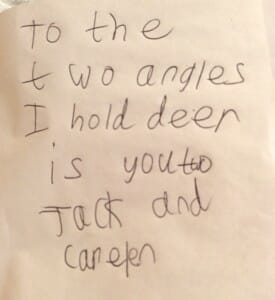 to the
two angles
I hold deer
is you two
Jack and